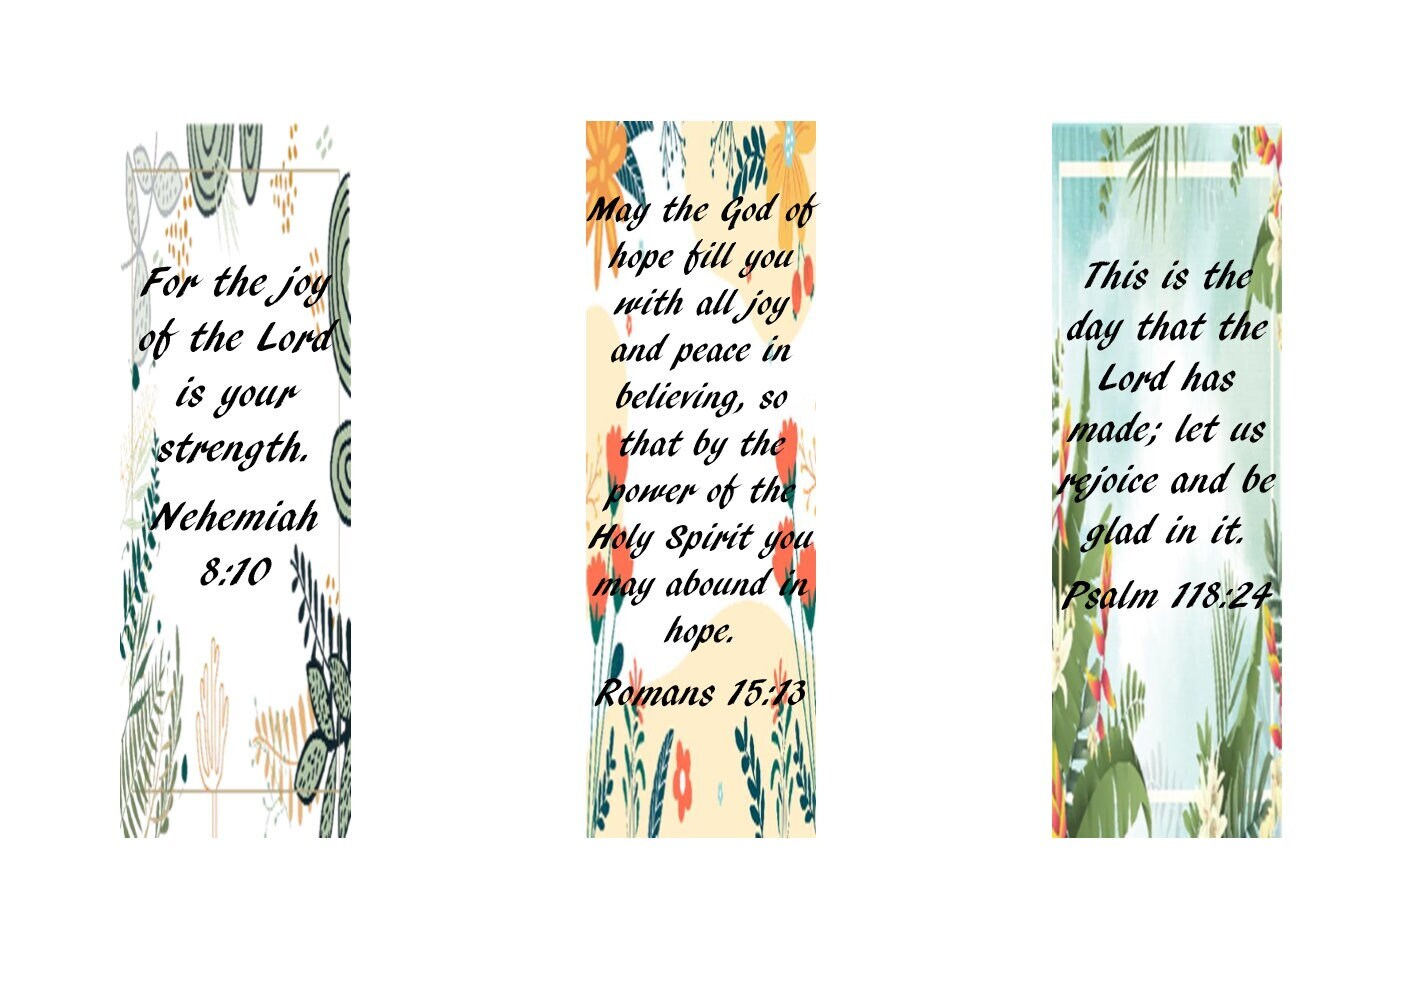 For the joy
of the Lord
is your
strength.
Nehemiah
8:10
May the God of
hope fill you
with all joy
and peace in
believing, so
that by the
power of the
Holy Spirit you
may abound in
hope.
Romans 15:13
This is the
day that the
Lord has
made; let us
rejoice and be
glad in it.
Psalm 118:24